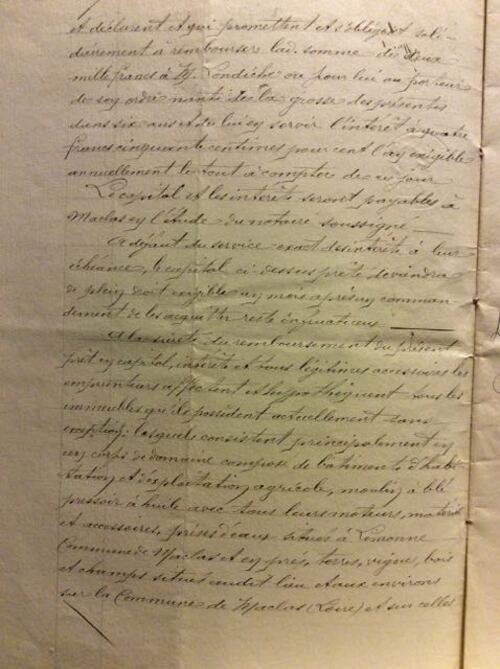 et déclarent et qui promettent et s'obligent soli-
dairement à rembourser lad. somme de deux
mille francs à M. Londiche ou pour lui au porteur
de son ordre nanti de la grosse des présentes
dans six ans et de lui en servir l'intérêt à quatre
francs cinquante centimes pour cent l'an exigible
annuellement le tout à compter de ce jour
Le capital et les intérêts seront payables à
Maclas en l'Etude du notaire soussigné
A défaut du service exact des intérêts à leur
échéance, le capital ci dessus prêté deviendra
de plein droit exigible un mois après un comman-
dement de les acquitter resté infructueux
A la sûreté du remboursement du présent
prêt en capital, intérêts et tous légitimes accessoires les
emprunteurs affectent et hypothèquent tous les
immeubles qu'ils possèdent actuellement sans
exception, lesquels consistent principalement en
un corps de domaine composé de bâtiments d'habi-
tation et d'exploitation agricole, moulin à blé
pressoir à huile avec tous leurs moteurs, matériel
et accessoires, prises d'eaux situés à Limonne
Commune de Maclas et en prés, terres, vignes, bois
et champs situés audit lieu et aux environs
sur la Commune de Maclas (Loire) et sur celles